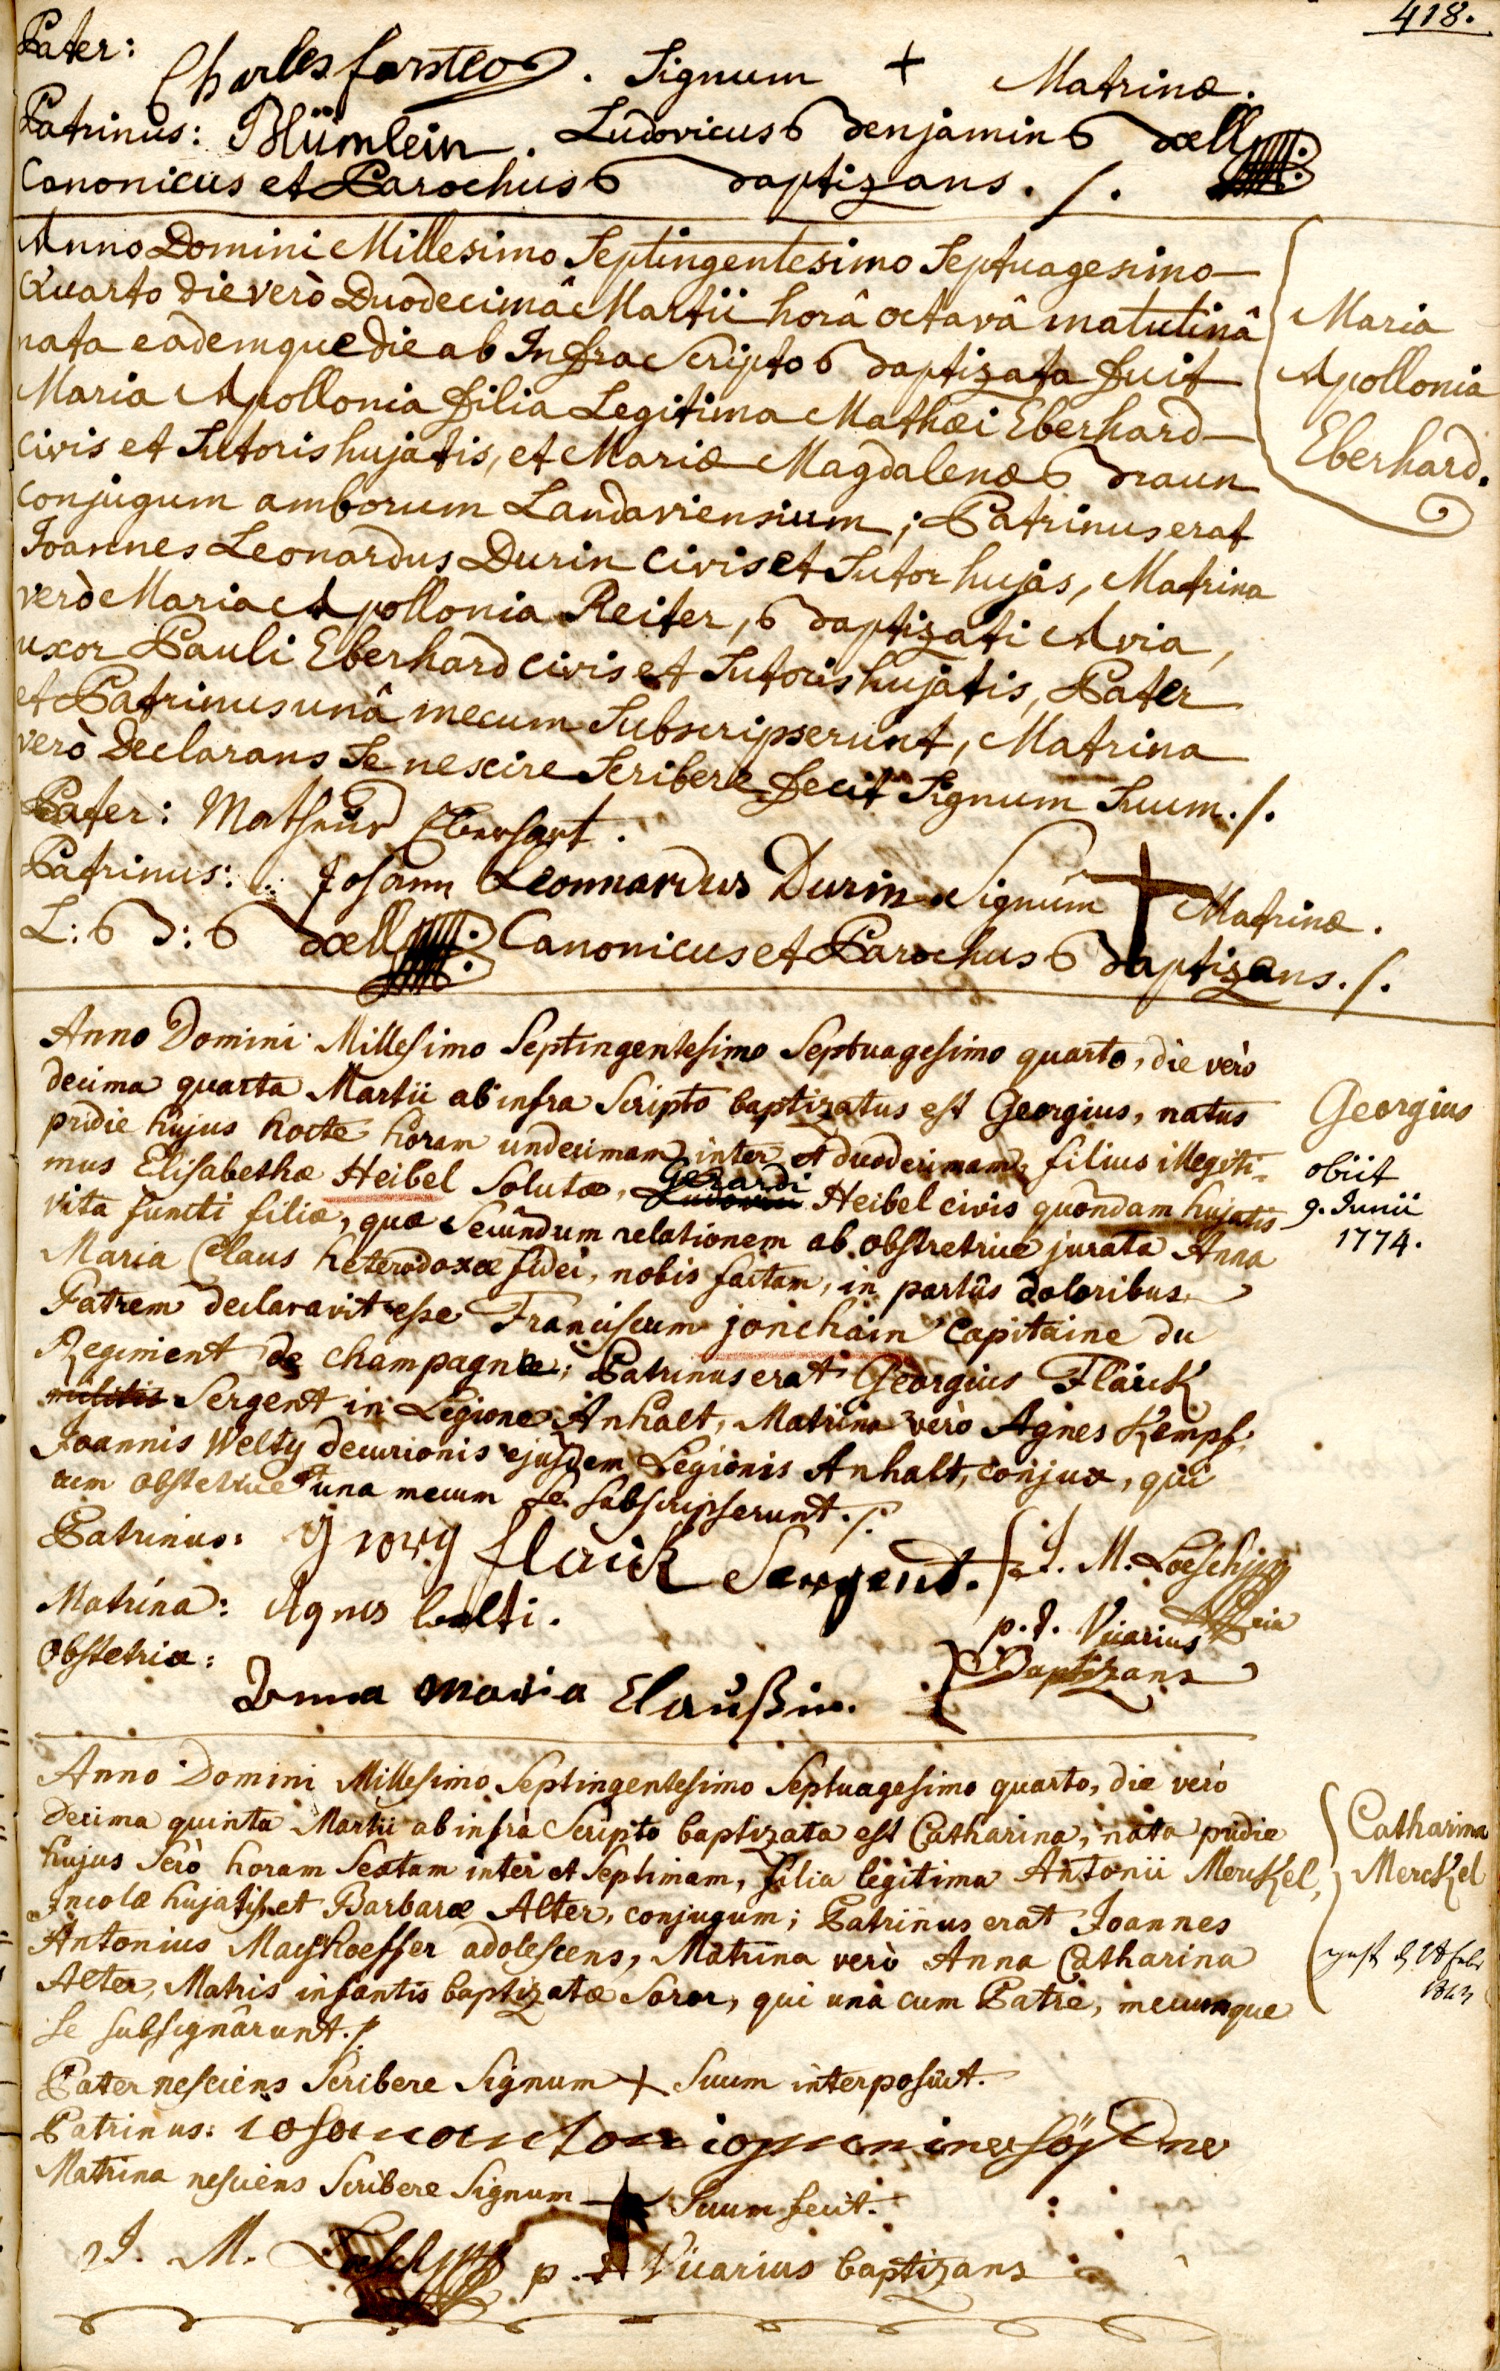 418.
Pater: Charles forsteo. Signum + Matrinæ.
Patrinus: Blümlein. Ludovicus Benjamin Boell
Canonicus et Parochus Baptizans ./.
Anno Domini Millesimo Septingentesimo Septuagesimo
Quarto die verò Duodecimâ Martii horâ octavâ matutinâ
nata eademque die ab Infra Scripto Baptizata fuit
Maria Apollonia filia Legitima Mathæi Eberhard
civis et Sutoris hujatis, et Mariæ Magdalenæ Braun
conjugum amborum Landaviensium; Patrinus erat
Joannes Leonardus Durin civis et Sutor hujas, Matrina
verò Maria Apollonia Reiter, Baptizati Avia,
uxor Pauli Eberhard civis et Sutoris hujatis, Pater
et Patrinus unâ mecum Subscripserunt, Matrina
verò Declarans Se nescire Scribere fecit Signum Suum ./.
Maria
Apollonia
Eberhard.
Pater: Matheus Eberhart.
Patrinus: Johann Leonnardus Durin Signum + Matrinæ.
L: B: Boell Canonicus et Parochus Baptizans ./.
Anno Domini Millesimo Septingentesimo Septuagesimo quarto, die verò
decima quarta Martii ab infra Scripto baptizatus est Georgius, natus
pridie hujus nocte horam undecimam inter et duodecimam, filius illegiti-
mus Elisabethæ Heibel Solutæ, Gerardi Heibel civis quondam hujatis
vita functi filiæ, quæ Secundum relationem ab obstretrice jurata Anna
Maria Claus heterodoxæ fidei, nobis factam, in partûs doloribus
Patrem declaravit esse Franciscum jonchain Capitaine du
Regiment de champagne; Patrinus erat Georgius Flaick
militis Sergent in Legione Anhalt, Matrina verò Agnes Kempf
Joannis Welty decurionis ejusdem Legionis Anhalt, conjux, qui
cum obstetrice una mecum se subscripserunt ./.
Georgius
obiit
9. Junii
1774.
Patrinus: Georg flaick Sergent. J. M. Loeschjng
Matrina: Agnes Welti. p. t. Vicarius
Baptizans
Obstetrix: Anna Maria Claußin.
Anno Domini Millesimo Septingentesimo Septuagesimo quarto, die verò
decima quinta Martii ab infrà Scripto baptizata est Catharina, nata pridie
hujus Serò horam Sextam inter et Septimam, filia legitima Antonii Merckel,
Incolæ hujatis et Barbaræ Alter, conjugum; Patrinus erat Joannes
Antonius Mayshoeffer adolescens, Matrina verò Anna Catharina
Alter, Matris infantis baptizatæ Soror, qui unà cum Patre, mecumque
se subsignârunt ./.
Catharina
Merckel
Pater nesciens Scribere Signum + Suum interposuit.
Patrinus:
Matrina nesciens Scribere Signum + Suum fecit.
J. M. Loeschjng p. t. Vicarius baptizans